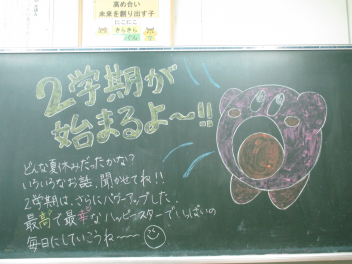 高め合い
未来を創り出す子
にこにこ
きらきら
ぐんぐん
2学期が
始まるよ〜!!
どんな夏休みだったかな?
いろいろなお話、聞かせてね!!
2学期は、さらにパワーアップした、
最高で最幸なハッピースターでいっぱいの
毎日にしていこうね〜〜